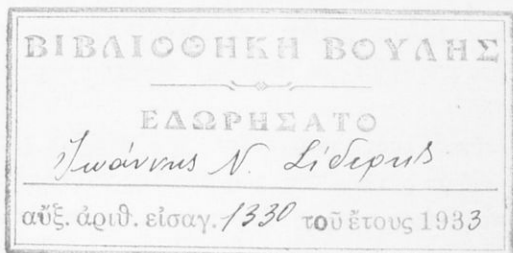 ΒΙΒΛΙΟΘΗΚΗ ΒΟΥΛΗΣ
ΕΔΩΡΗΣΑΤΟ
Ἰωάννης Ν. Σίδερης
αὔξ. ἀριθ. εἰσαγ. 1330 τοῦ ἔτους 1933